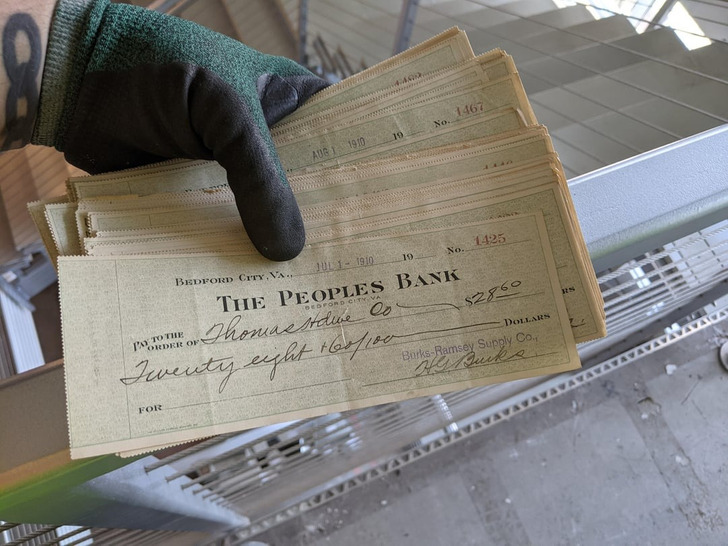 8
1467
AUG 1 1910 19 No.
BEDFORD CITY, VA., JUL 1 - 1910 19 No. 1425
THE PEOPLES BANK
BEDFORD CITY, VA.
PAY TO THE ORDER OF Thomas Hdwe Co $28 60
Twenty eight + 60/100 DOLLARS
Burks-Ramsey Supply Co.,
FOR H G Burks.